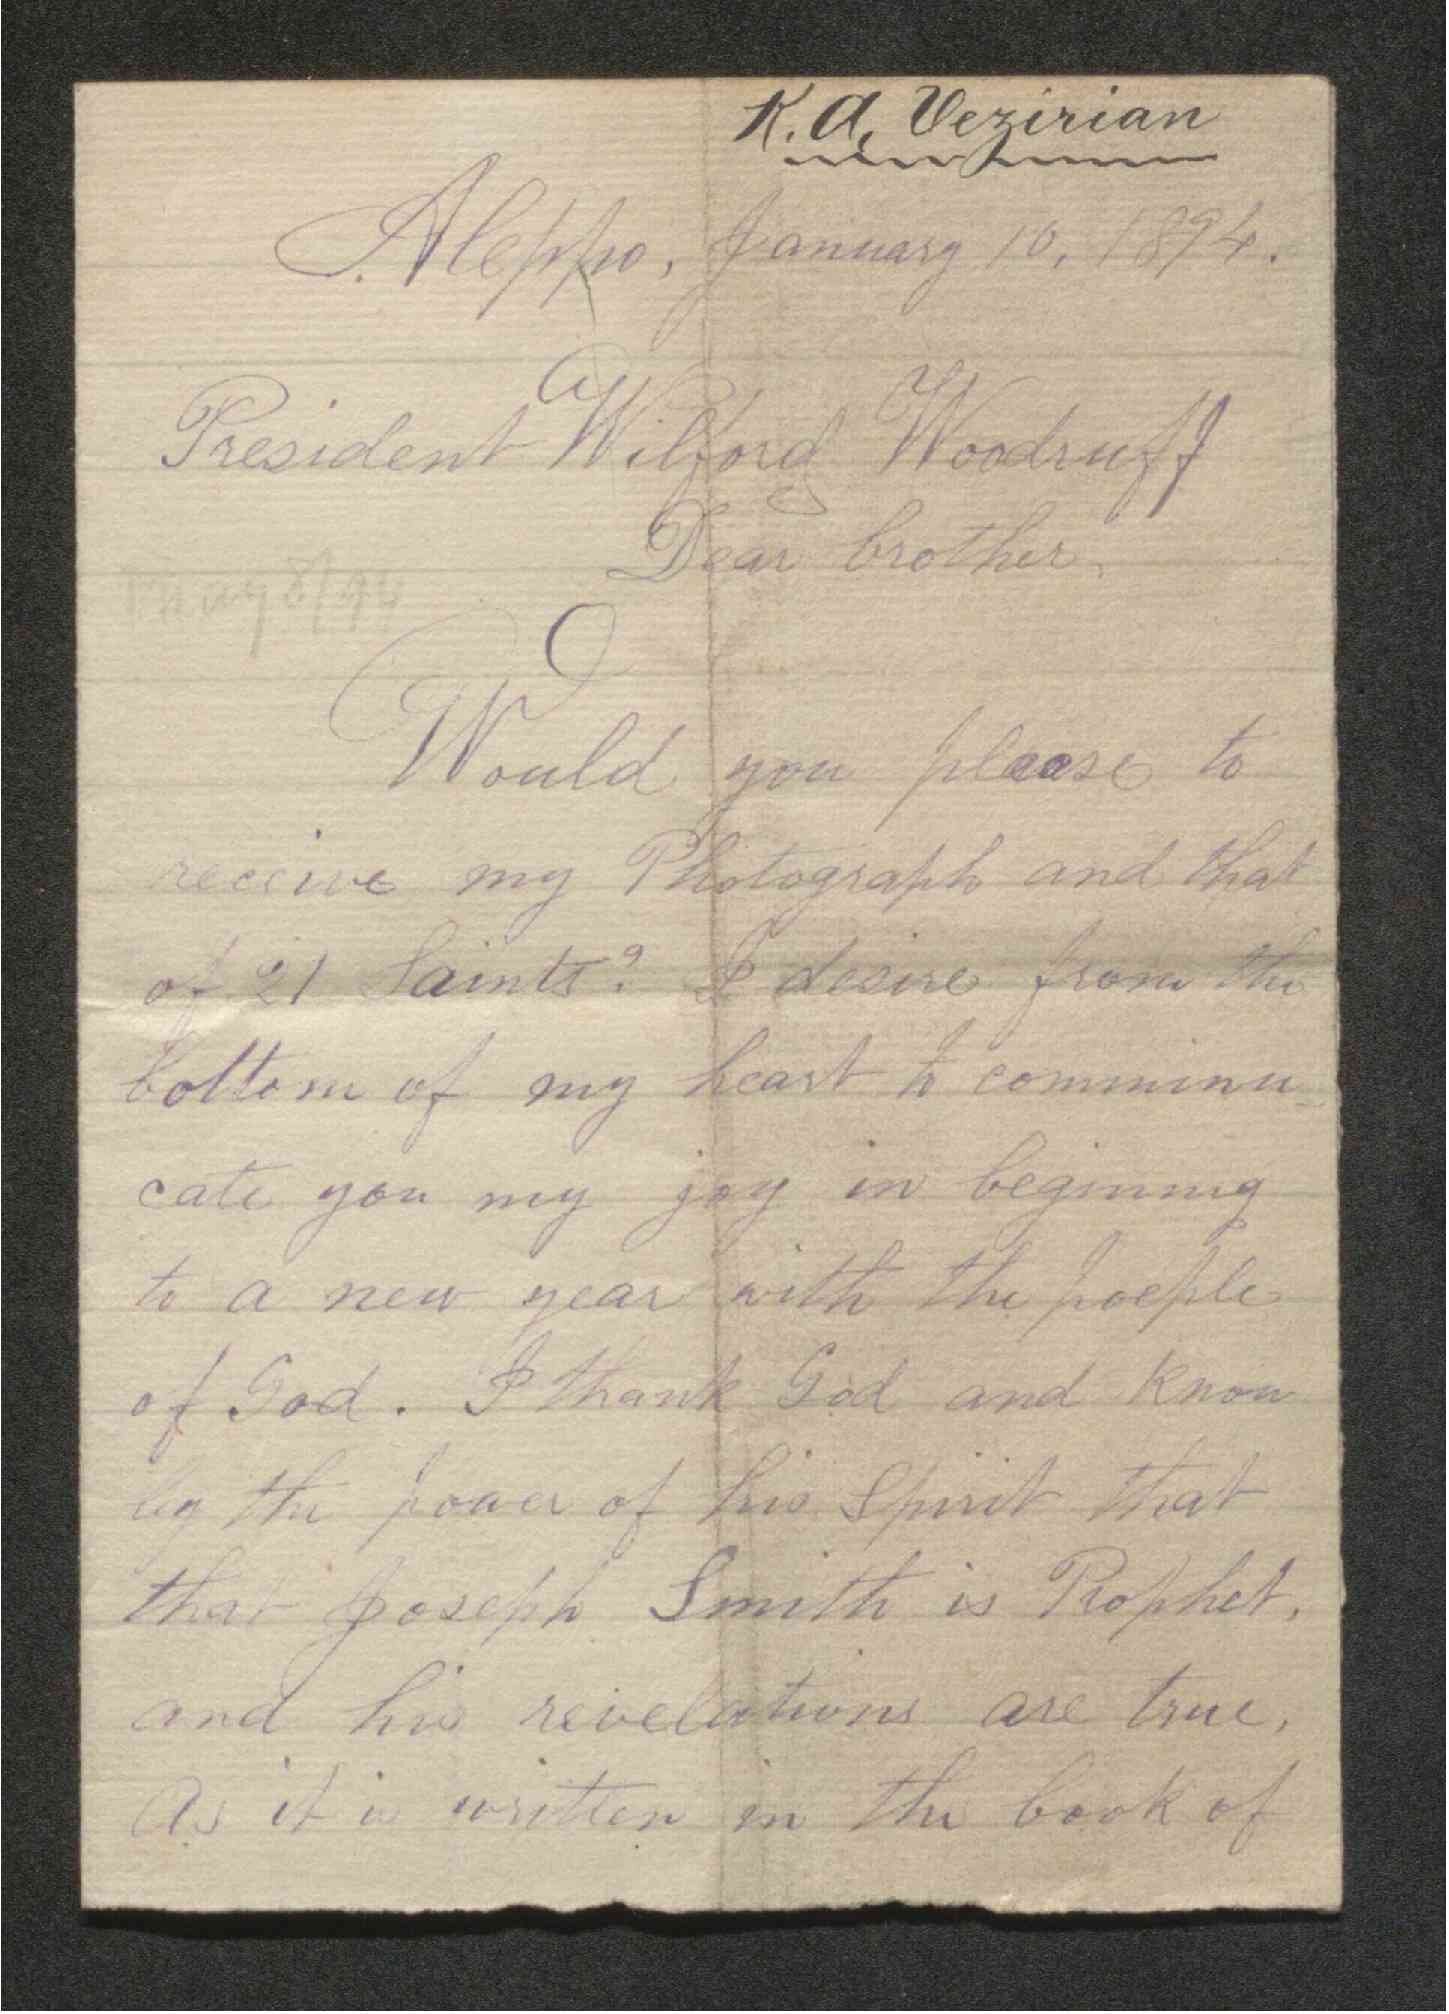 K. A. Vezirian
Aleppo, January 10, 1894.
President Wilford Woodruff
Dear brother,
May 8/94
Would you please to
receive my Photograph and that
of 21 Saints? I desire from the
bottom of my heart to comminu-
cate you my joy in beginnig
to a new year with the poeple
of God. I thank God and know
by the power of his Spirit that
that Joseph Smith is Prophet,
and his revelations are true,
As it is written in the book of